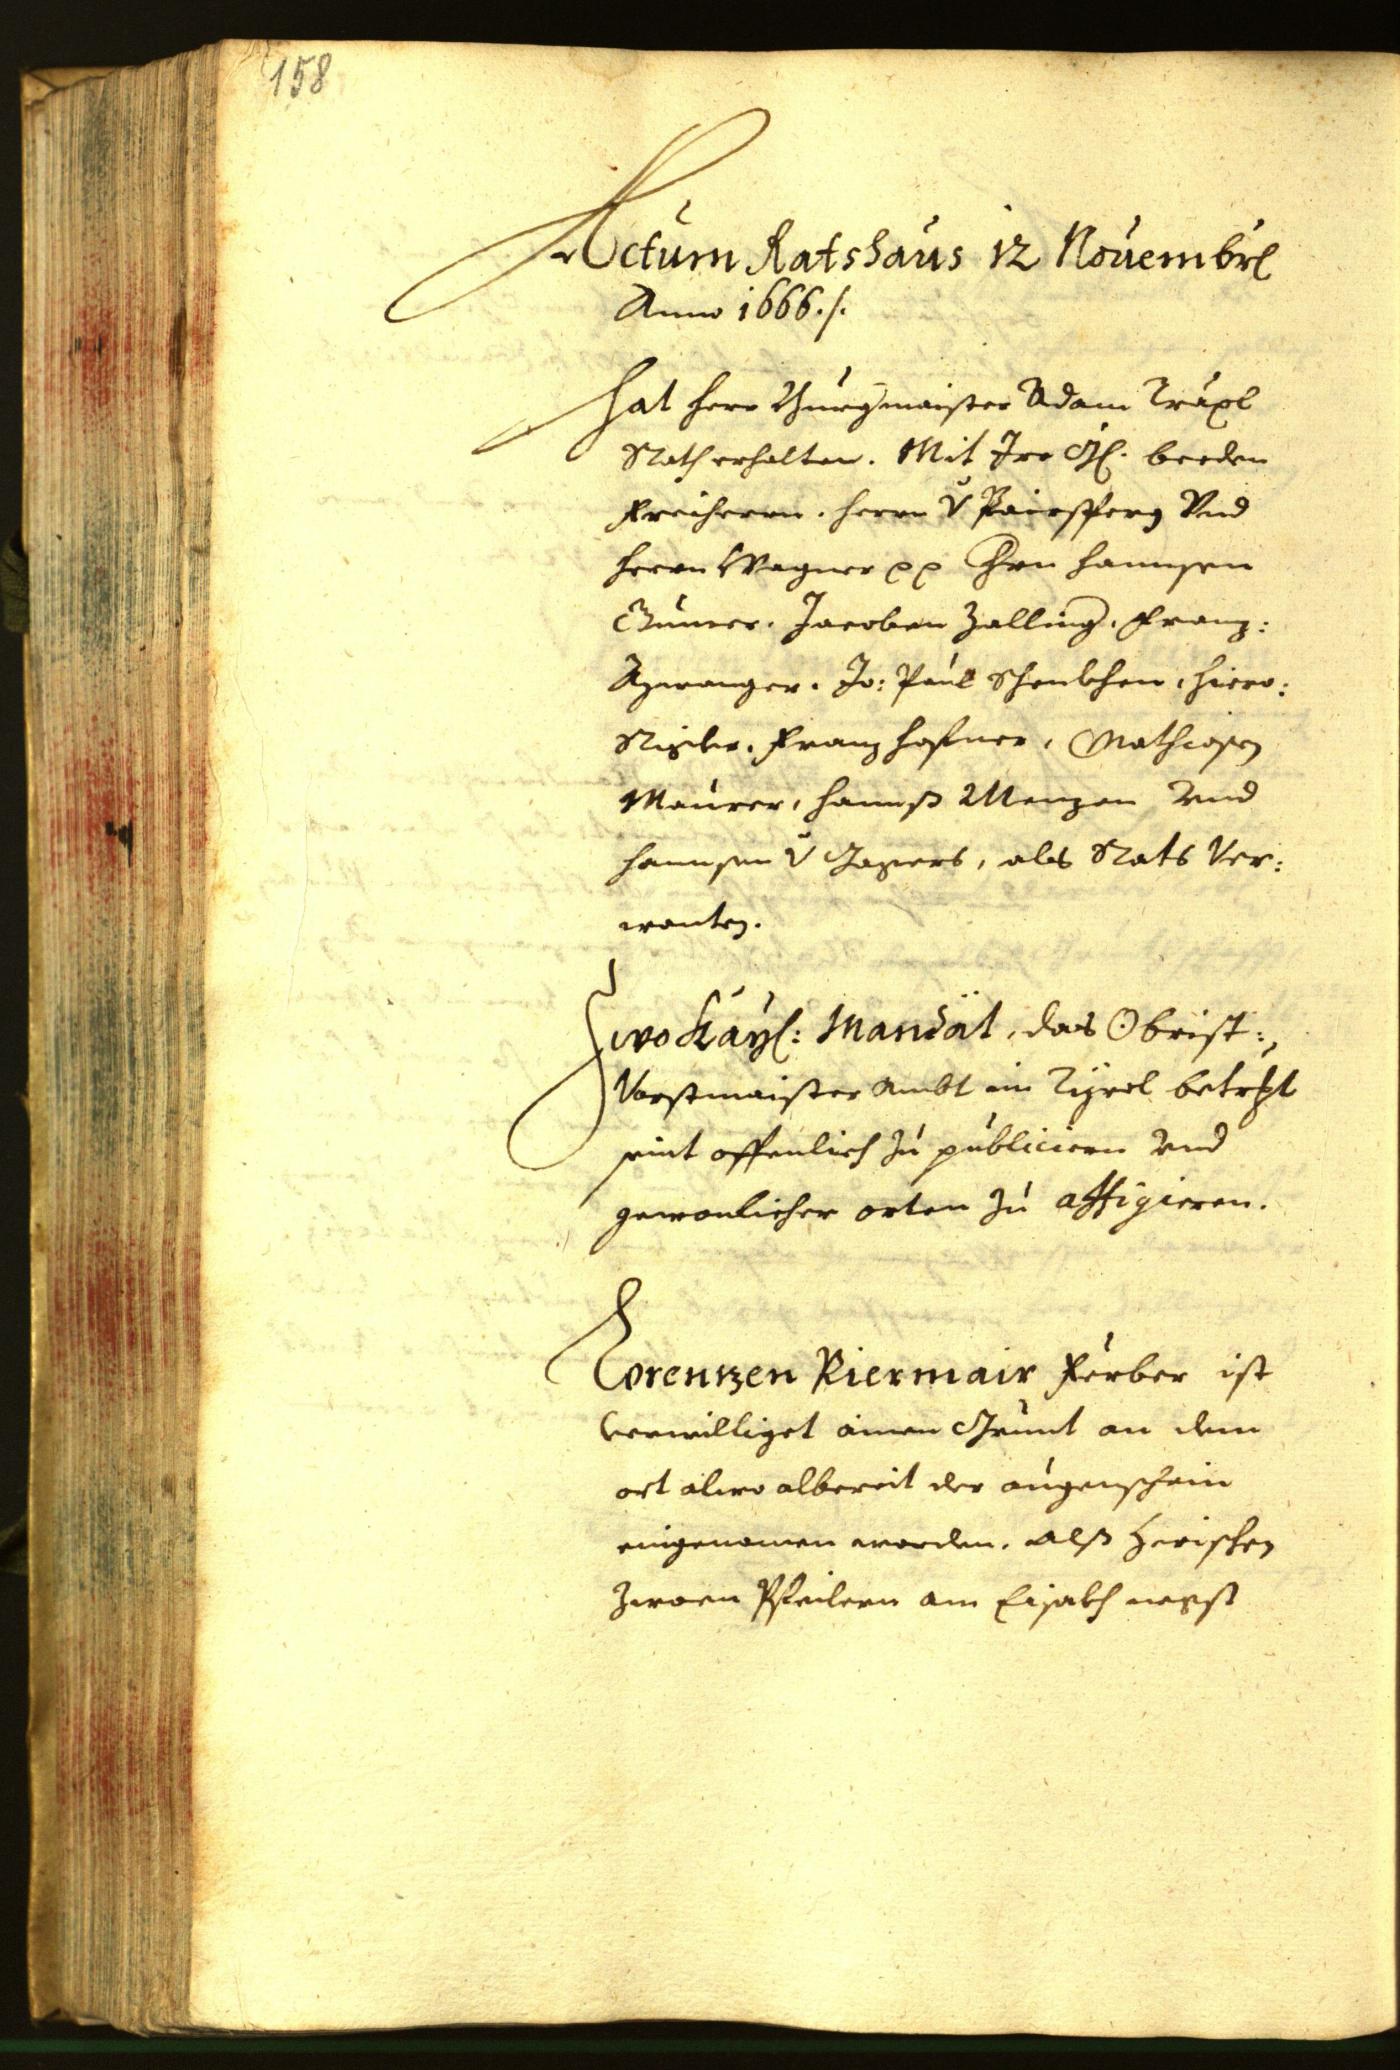 158
Actum Ratshaus 12 Novembr[is]
Anno 1666 ./.
Hat herr Burgmaister Adam Träxl
Rath erhalten. Mit Ire G: beeden
Freiherrn. herrn v Pairsperg Vnd
herrn Wagner pp Hrn hannsen
Gumer. Jacoben Zalling. Franz:
Azwanger. Jo: Paul Schenkhen, hiero:
Rigler. Franz hafner, Mathiasen
Maurer, hannß Menzen vnd
hannsen v Jagers, als Rats Ver:
wonten.
Zwo Kayl: Mandat, das Obrist:,
Vorstmaister Ambt in Tyrol betrfet
seint offenlich zu publiciern vnd
gewonlicher orten zu affigieren.
Lorentzen Riermair Ferber ist
verwilliget ainen Grunt an dem
ort alwo albereit der augenschein
eingenomen worden. alß zwischen
zwoen Pfeilern am Eisakh negst